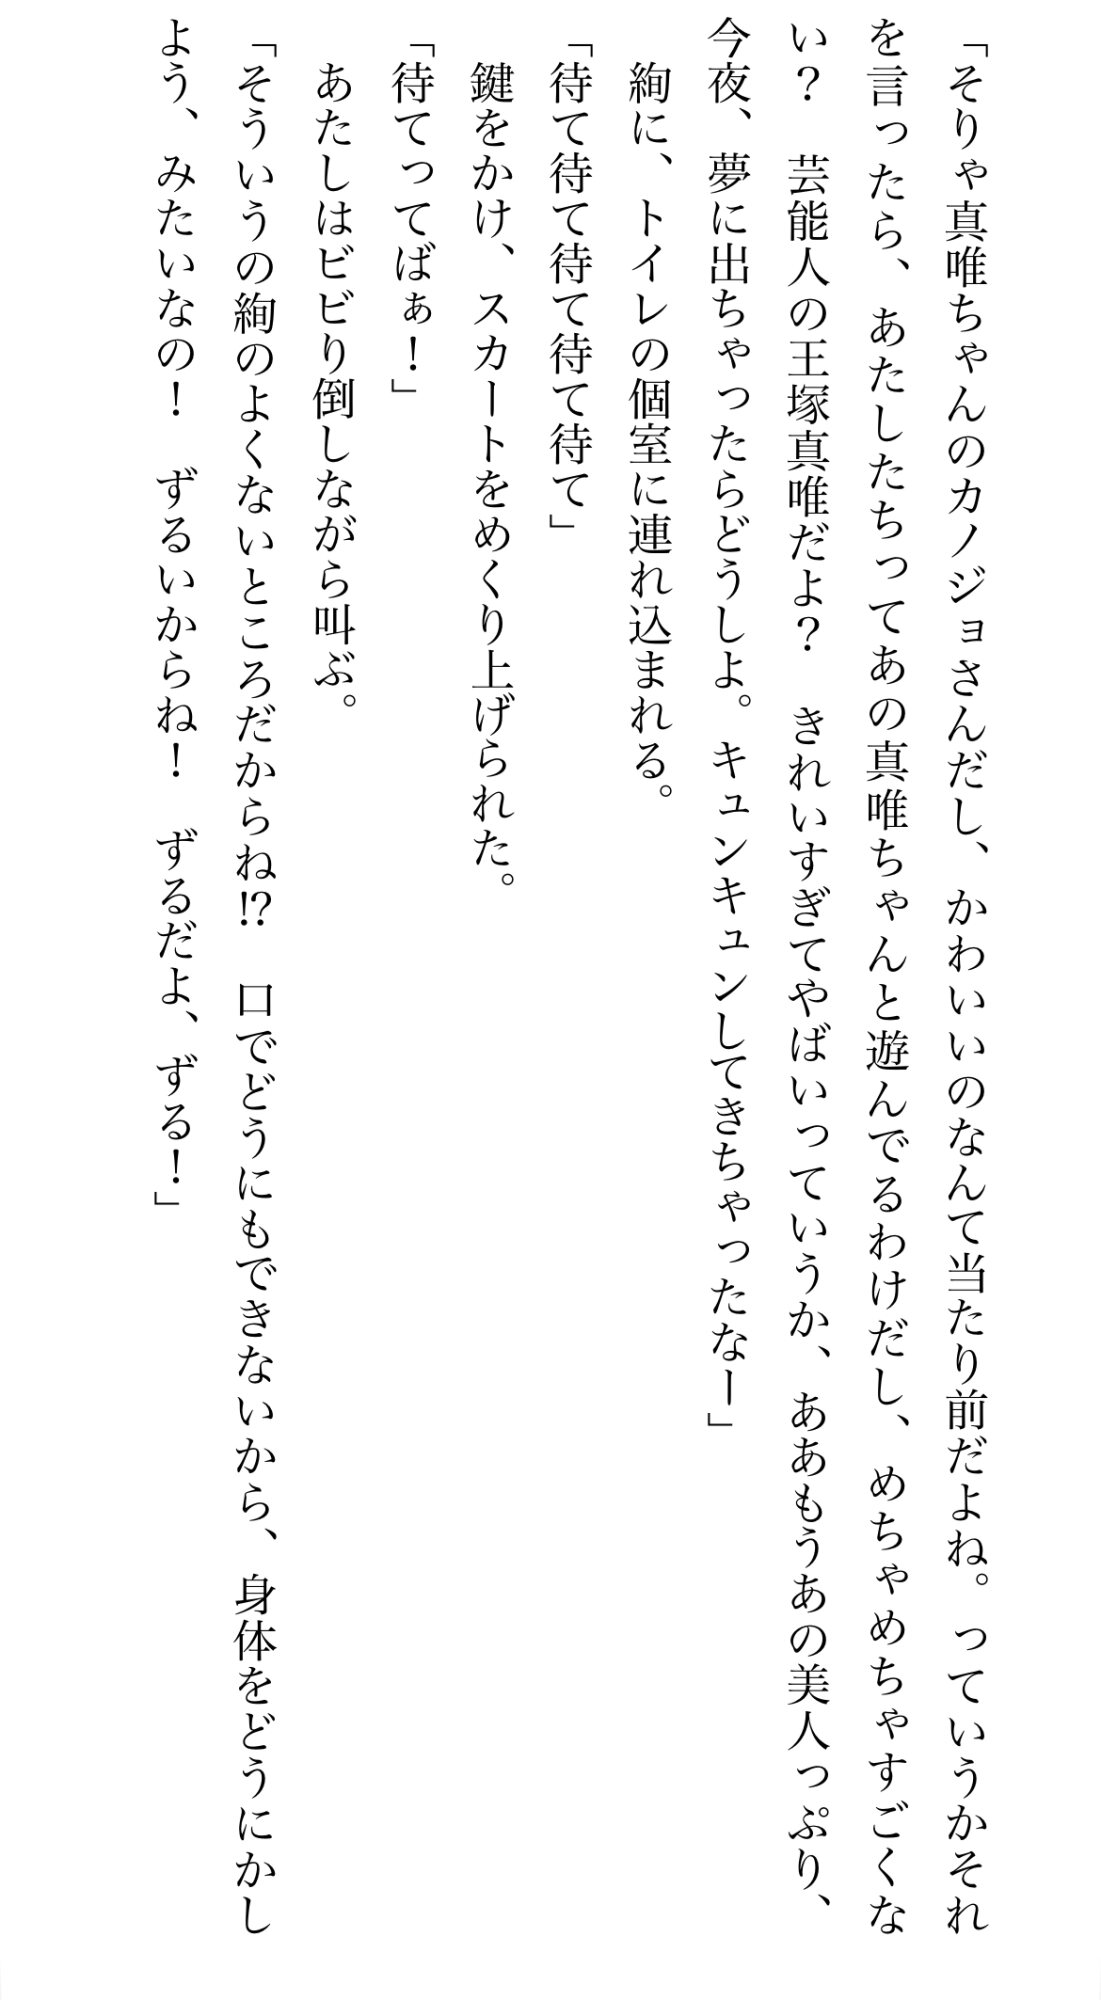 「そりゃ真唯ちゃんのカノジョさんだし、かわいいのなんて当たり前だよね。っていうかそれ
を言ったら、あたしたちってあの真唯ちゃんと遊んでるわけだし、めちゃめちゃすごくな
い？　芸能人の王塚真唯だよ？　きれいすぎてやばいっていうか、ああもうあの美人っぷり、
今夜、夢に出ちゃったらどうしよ。キュンキュンしてきちゃったなー」
　絢に、トイレの個室に連れ込まれる。
「待て待て待て待て待て」
　鍵をかけ、スカートをめくり上げられた。
「待てってばぁ！」
　あたしはビビり倒しながら叫ぶ。
「そういうの絢のよくないところだからね⁉　口でどうにもできないから、身体をどうにかし
よう、みたいなの！　ずるいからね！　ずるだよ、ずる！」